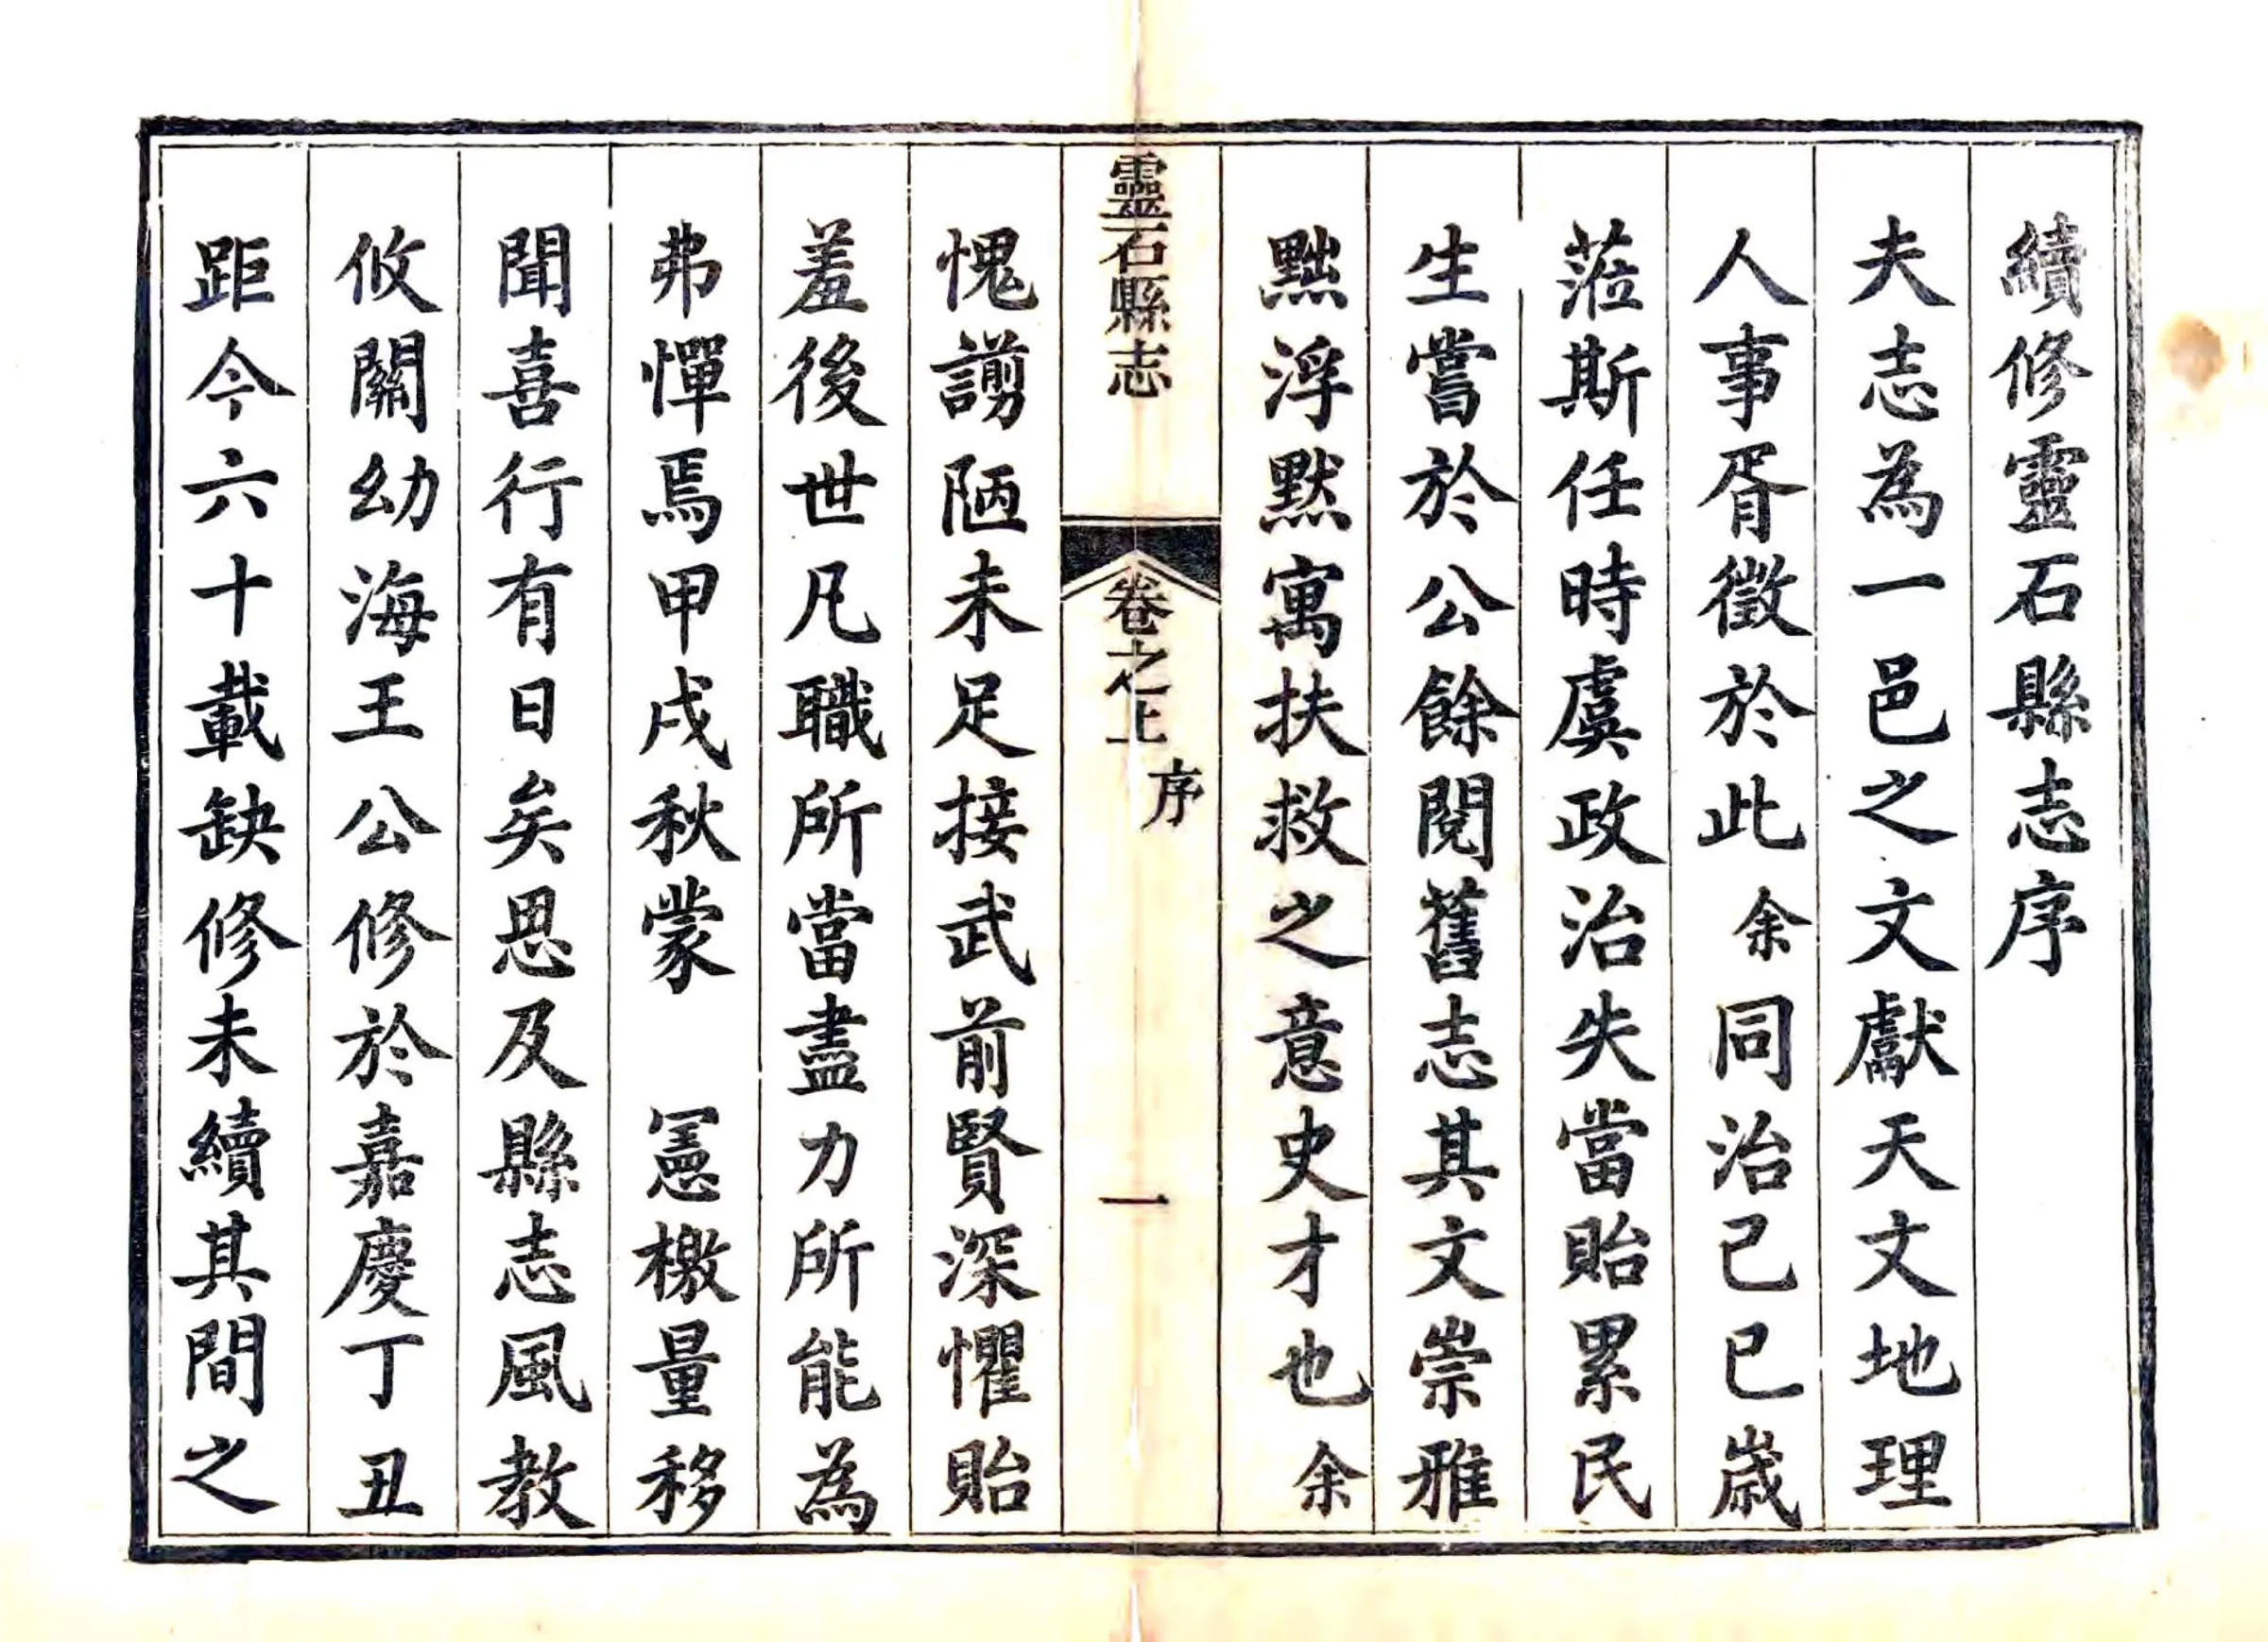 續修靈石縣志序
夫志為一邑之文獻天文地理
人事胥徵於此余同治己巳歲
蒞斯任時虞政治失當貽累民
生嘗於公餘閱舊志其文崇雅
黜浮默寓扶救之意史才也余
愧謭陋未足接武前賢深懼貽
羞後世凡職所當盡力所能為
弗憚焉甲戌秋蒙　憲檄量移
聞喜行有日矣思及縣志風教
攸關幼海王公修於嘉慶丁丑
距今六十載缺修未續其間之
靈石縣志
卷之上
序
一